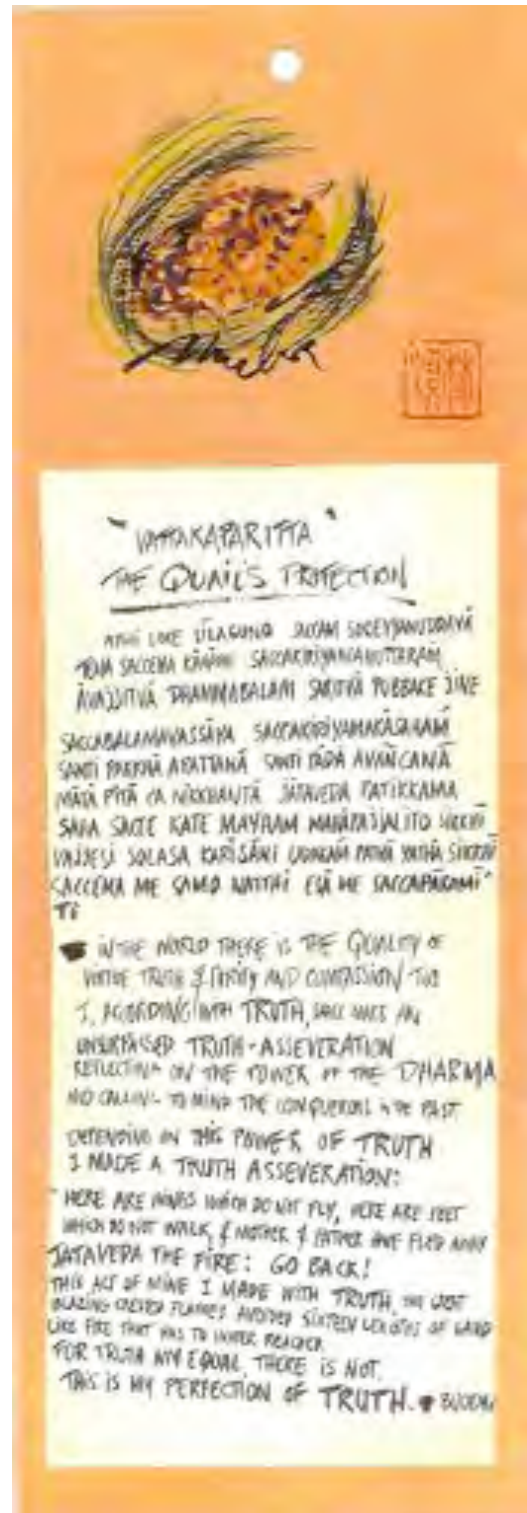 "VATTAKAPARITTA"
THE QUAIL'S PROTECTION
ATTHI LOKE SĪLAGUNO SACCAM SOCEYYANUDDAYĀ
TENA SACCENA KĀHĀMI SACCAKIRIYAMANUTTARAM
ĀVAJJITVĀ DHAMMABALAM SARITVĀ PUBBAKE JINE
SACCABALAMAVASSĀYA SACCAKIRIYAMAKĀSAHAM
SANTI PAKKHĀ APATTANĀ SANTI PĀDĀ AVAÑCANĀ
MĀTĀ PITĀ CA NIKKHANTĀ JĀTAVEDA PATIKKAMA
SAHA SACCE KATE MAYHAM MAHĀPAJJALITO SIKHĪ
VAJJESI SOLASA KARĪSĀNI UDAKAM PATVĀ YATHĀ SIKHĪ
SACCENA ME SAMO NATTHI ESĀ ME SACCAPĀRAMĪ"
TI
IN THE WORLD THERE IS THE QUALITY OF
VIRTUE TRUTH & PURITY AND COMPASSION TOO
I, ACCORDING WITH TRUTH, SHALL MAKE AN
UNSURPASSED TRUTH-ASSEVERATION
REFLECTING ON THE POWER OF THE DHARMA
AND CALLING TO MIND THE CONQUERORS IN THE PAST
DEPENDING ON THIS POWER OF TRUTH
I MADE A TRUTH ASSEVERATION:
"HERE ARE WINGS WHICH DO NOT FLY, HERE ARE FEET
WHICH DO NOT WALK, & MOTHER & FATHER HAVE FLED AWAY
JATAVEDA THE FIRE: GO BACK!
THIS ACT OF MINE I MADE WITH TRUTH, THE GREAT
BLAZING CRESTED FLAMES AVOIDED SIXTEEN LENGTHS OF LAND
LIKE FIRE THAT HAS TO WATER REACHED
FOR TRUTH MY EQUAL THERE IS NOT.
THIS IS MY PERFECTION OF TRUTH.